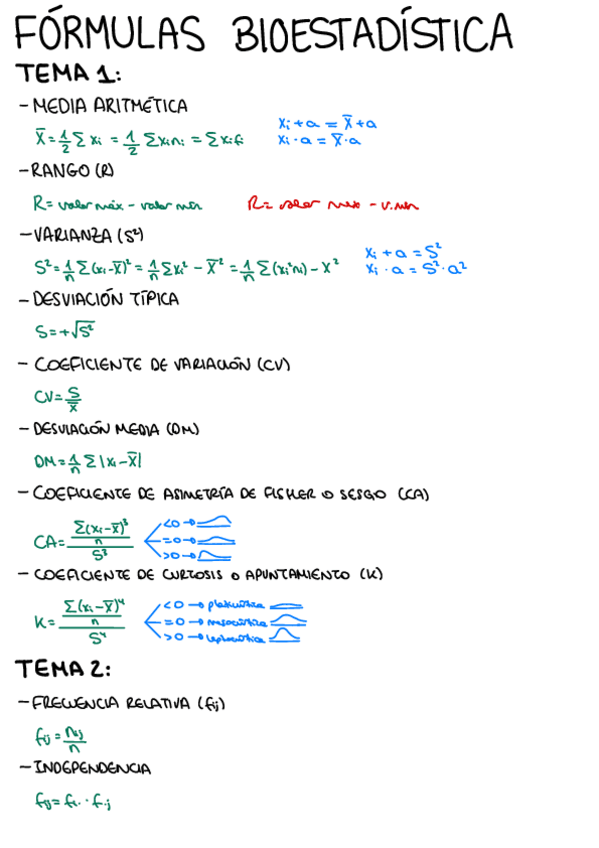 FÓRMULAS BIOESTADÍSTICA
TEMA 1:
- MEDIA ARITMÉTICA
X̄ = 1/2 Σ xi = 1/2 Σxini = Σxifi
xi + a = X̄ + a
xi · a = X̄ · a
- RANGO (R)
R = valor máx - valor mín
R = valor max - v.min
- VARIANZA (S²)
S² = 1/n Σ(xi - X̄)² = 1/n Σxi² - X̄² = 1/n Σ(xi²ni) - X²
xi + a = S²
xi · a = S² · a²
- DESVIACIÓN TÍPICA
S = +√S²
- COEFICIENTE DE VARIACIÓN (CV)
CV = S/x̄
- DESVIACIÓN MEDIA (DM)
DM = 1/n Σ |xi - X̄|
- COEFICIENTE DE ASIMETRÍA DE FISHER O SESGO (CA)
CA = (Σ(xi - x̄)³/n)/S³
<0 →
=0 →
>0 →
- COEFICIENTE DE CURTOSIS O APUNTAMIENTO (K)
K = (Σ(xi - x̄)⁴/n)/S⁴
<0 → platicúrtica
=0 → mesocúrtica
>0 → leptocúrtica
TEMA 2:
- FRECUENCIA RELATIVA (fij)
fij = nij/n
- INDEPENDENCIA
fij = fi. · f.j